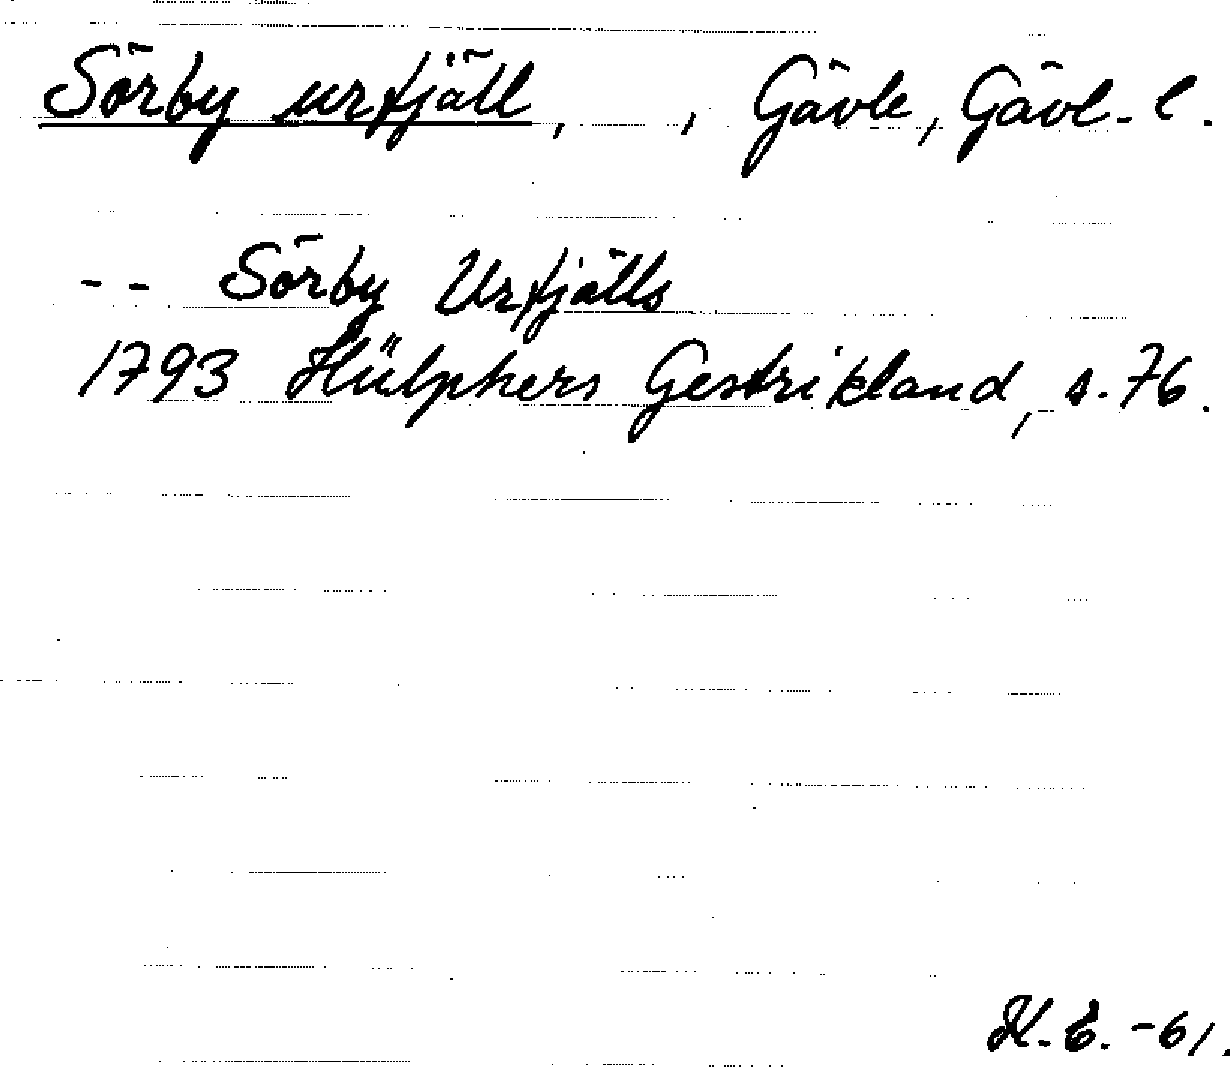 Sörby urfjäll, , Gävle, Gävl. l.
-- Sörby Urfjälls
1793 Hülphers Gestrikland, s. 76.
H.E. -61.